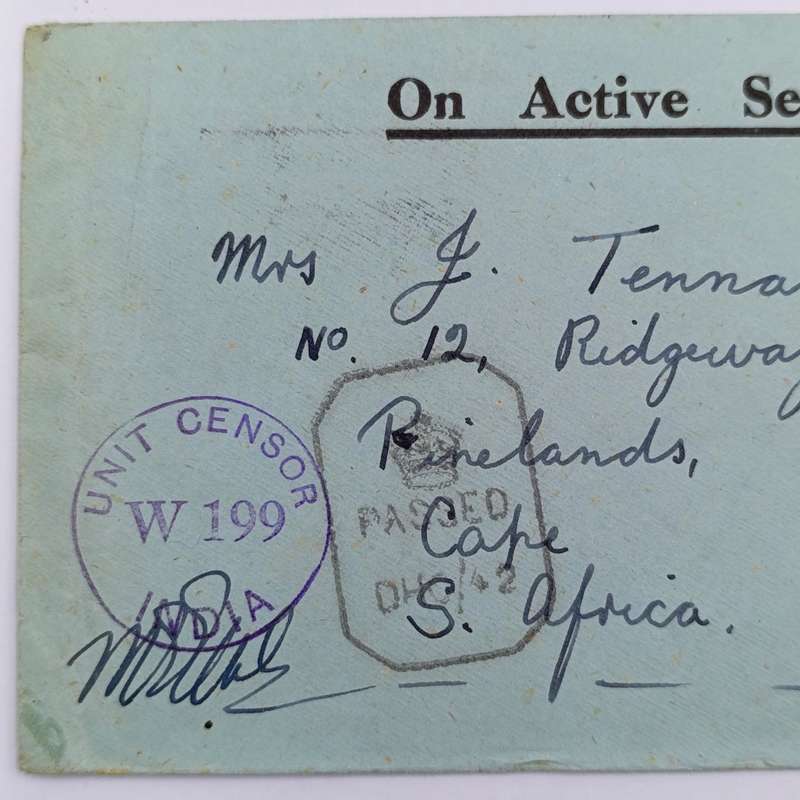 On Active Se
Mrs J. Tenna
No. 12, Ridgeway
Pinelands,
Cape
S. Africa.
UNIT CENSOR
W 199
INDIA
PASSED
DHC/42